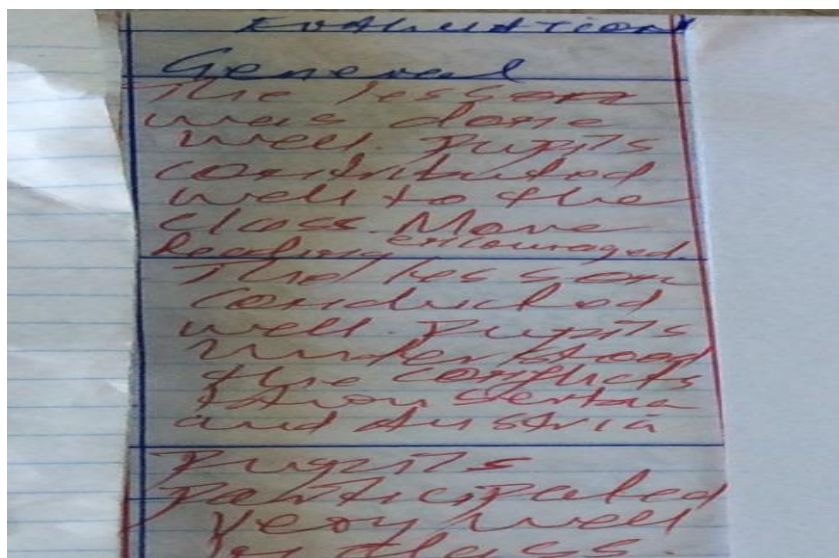 Evaluation
General
The lesson
was done
well. Pupils
contributed
well to the
class. More
Reading encouraged.
The lesson
conducted
well. Pupils
understood
the conflicts
btwn Serbia
and Austria
Pupils
participated
very well
in class.